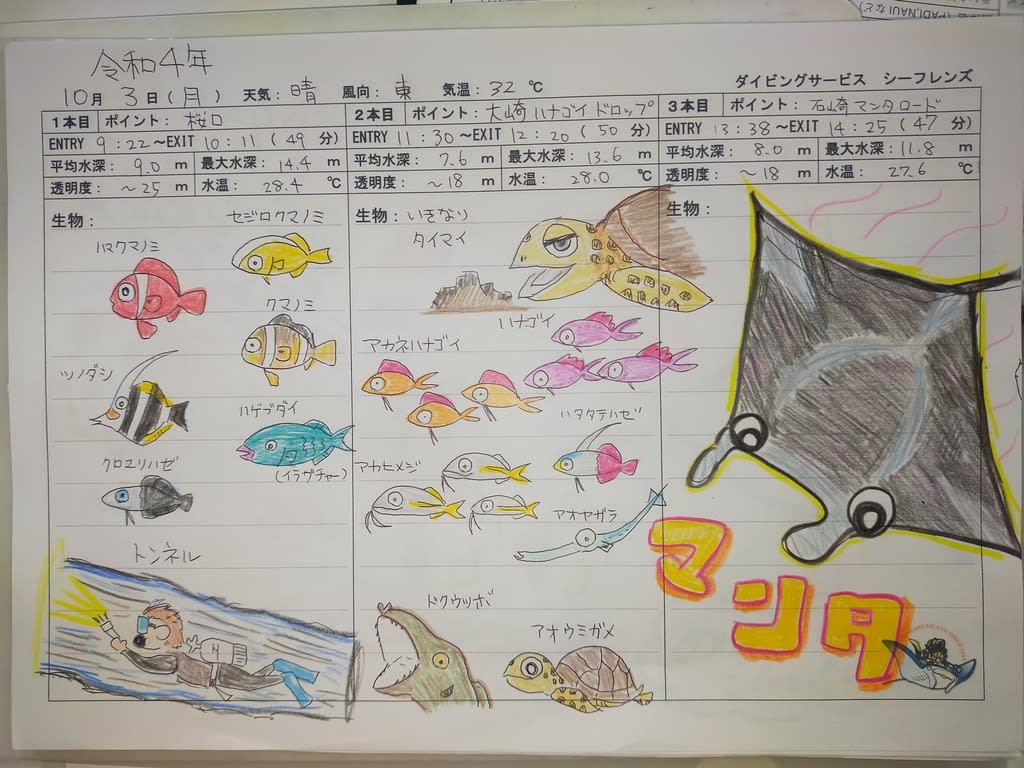 令和4年
10月 3日(月) 天気:晴 風向:東 気温:32 ℃
ダイビングサービス シーフレンズ
1本目 ポイント: 桜口
ENTRY 9:22~EXIT 10:11 (49 分)
平均水深: 9.0 m 最大水深: 14.4 m
透明度: ~25 m 水温: 28.4 ℃
生物:
セジロクマノミ
ハマクマノミ
クマノミ
ツノダシ
ハゲブダイ
(イラブチャー)
クロユリハゼ
トンネル
2本目 ポイント: 大崎ハナゴイドロップ
ENTRY 11:30~EXIT 12:20 (50 分)
平均水深: 7.6 m 最大水深: 13.6 m
透明度: ~18 m 水温: 28.0 ℃
生物: いきなり
タイマイ
ハナゴイ
アカネハナゴイ
ハタタテハゼ
アカヒメジ
アオヤガラ
ドクウツボ
アオウミガメ
3本目 ポイント: 石崎マンタロード
ENTRY 13:38~EXIT 14:25 (47 分)
平均水深: 8.0 m 最大水深: 11.8 m
透明度: ~18 m 水温: 27.6 ℃
生物:
マンタ
(PADI.NAUIなど